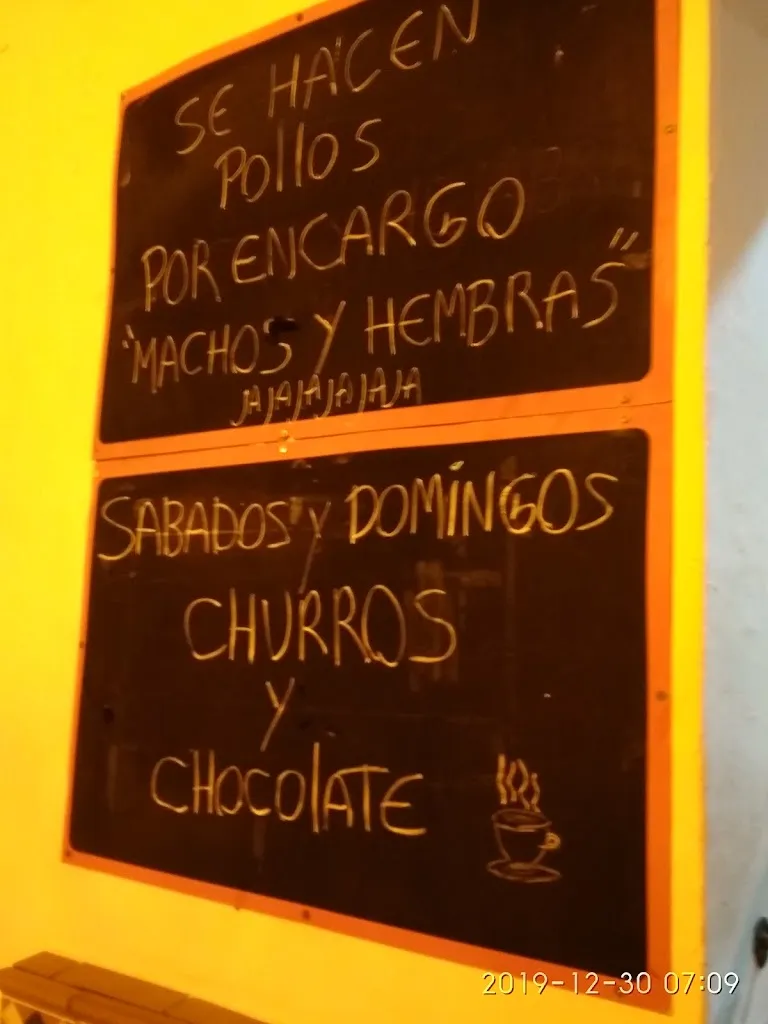 SE HACEN
POllOS
POR ENCARGO
"MACHOS Y HEMBRAS"
JAJAJAJAJAJA
SABADOS Y DOMINGOS
CHURROS
Y
CHOCOlATE
2019-12-30 07:09